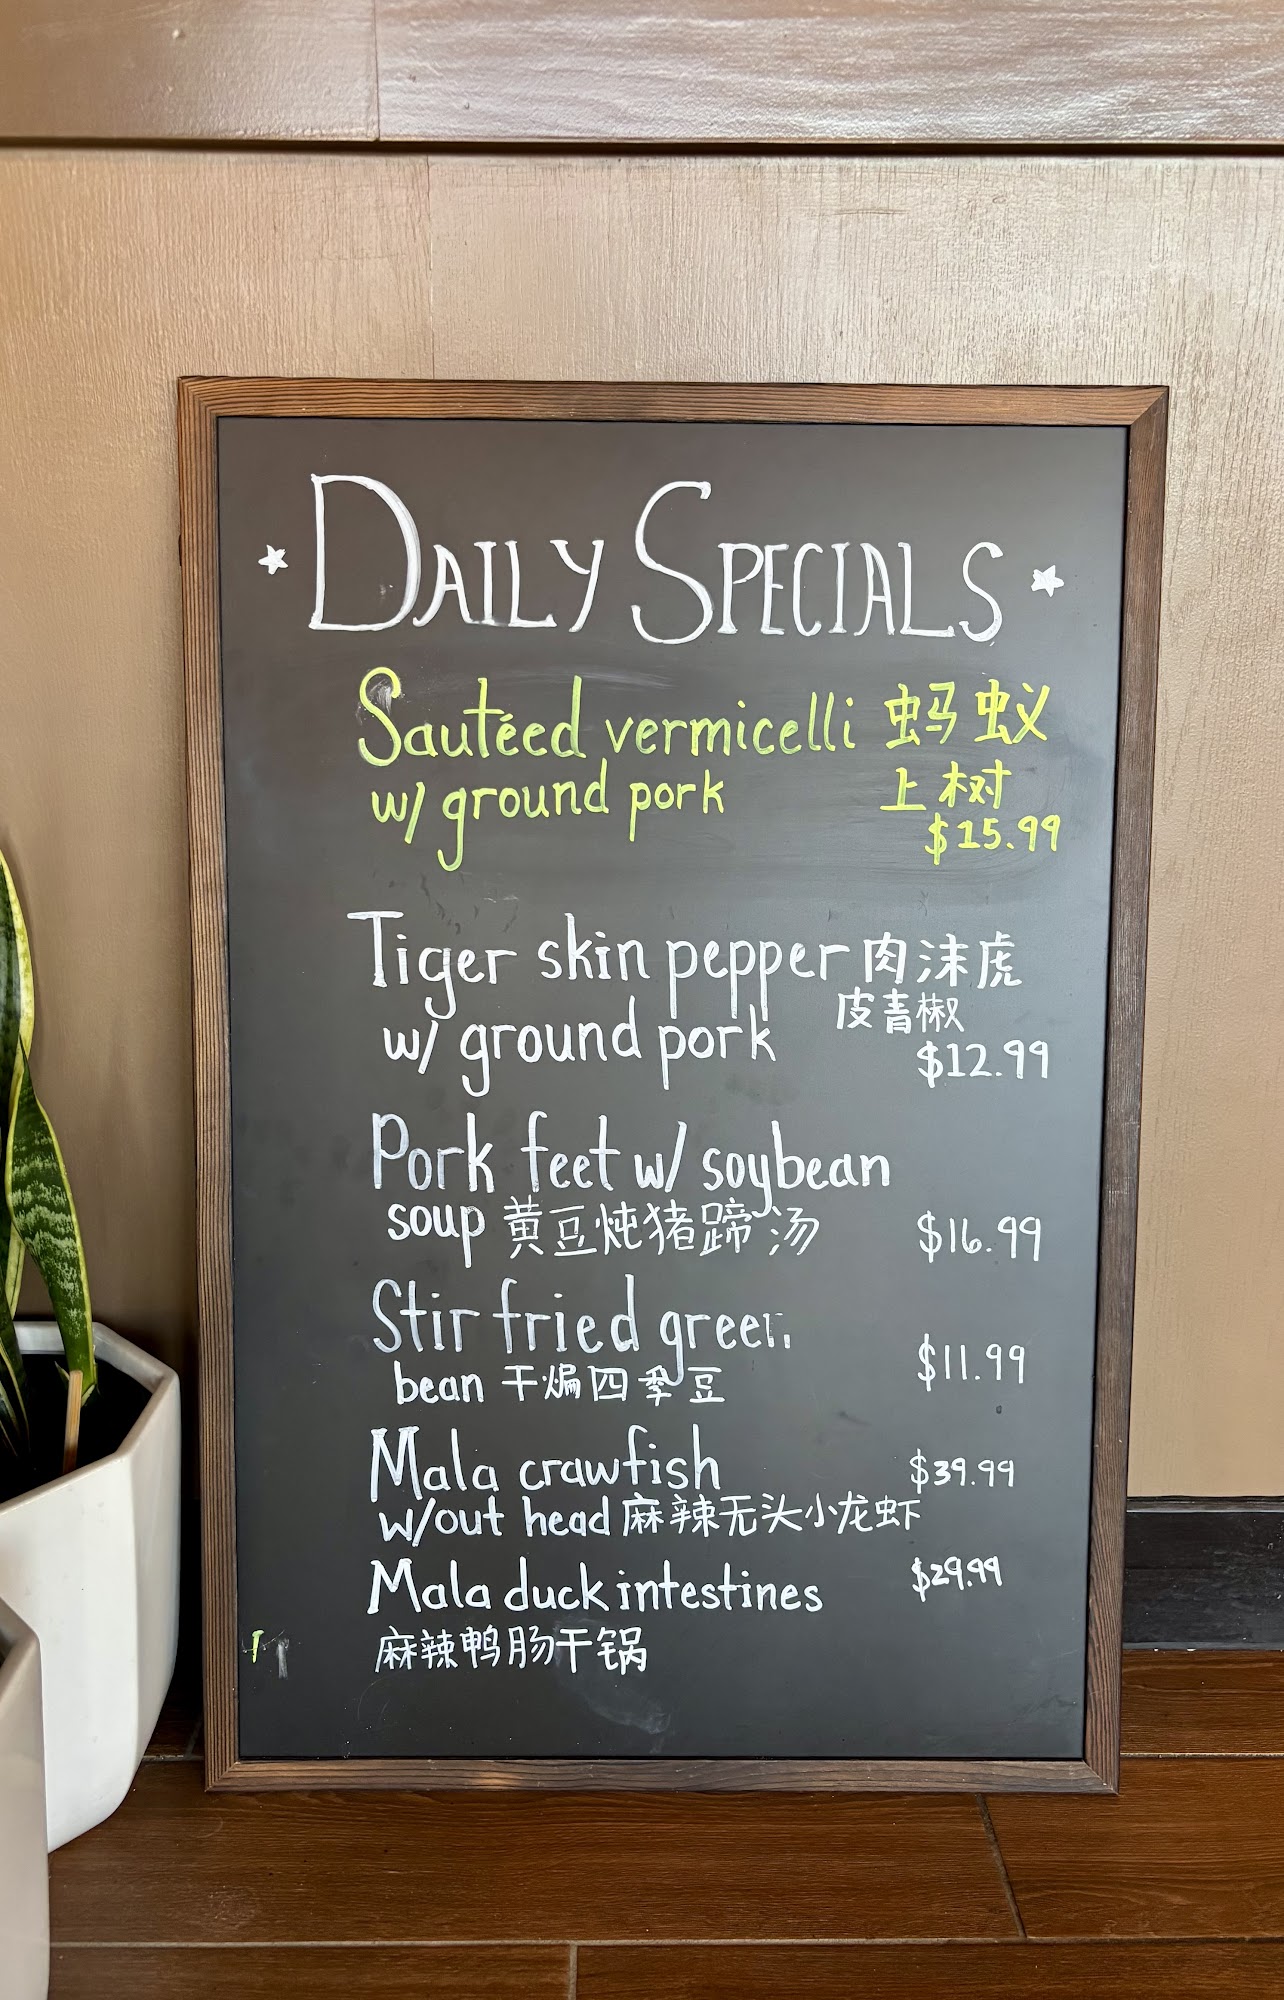 DAILY SPECIALS
Sautéed vermicelli 蚂蚁
w/ ground pork 上树
$15.99
Tiger skin pepper 肉沫虎
w/ ground pork 皮青椒
$12.99
Pork feet w/ soybean
soup 黄豆炖猪蹄汤 $16.99
Stir fried green
bean 干煸四季豆 $11.99
Mala crawfish $39.99
w/out head 麻辣无头小龙虾
Mala duck intestines $29.99
麻辣鸭肠干锅